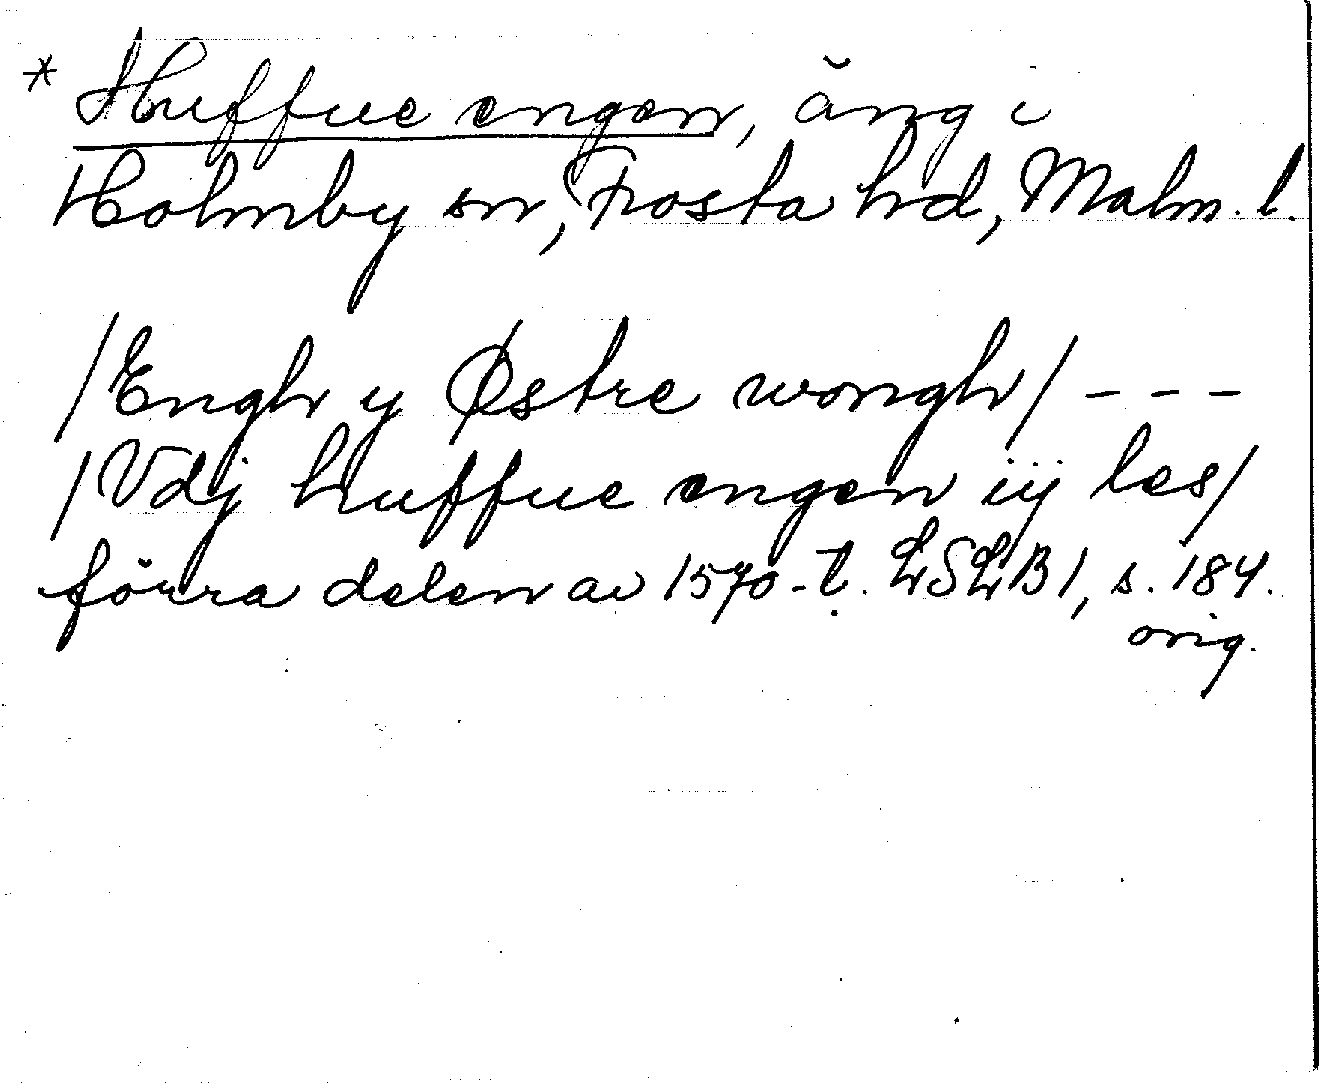 * Huffue engen, äng i
Holmby sn, Frosta hd, Malm. l.
/Engh y Østre wongh/ - - -
/Vdj huffue engen iij les/
förra delen av 1570-t. LSLB1, s. 184.
orig.